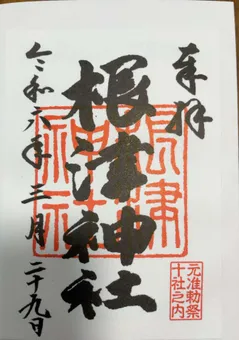 奉拝
根津神社
令和六年三月二十九日
根津神社
元准勅祭
十社之内